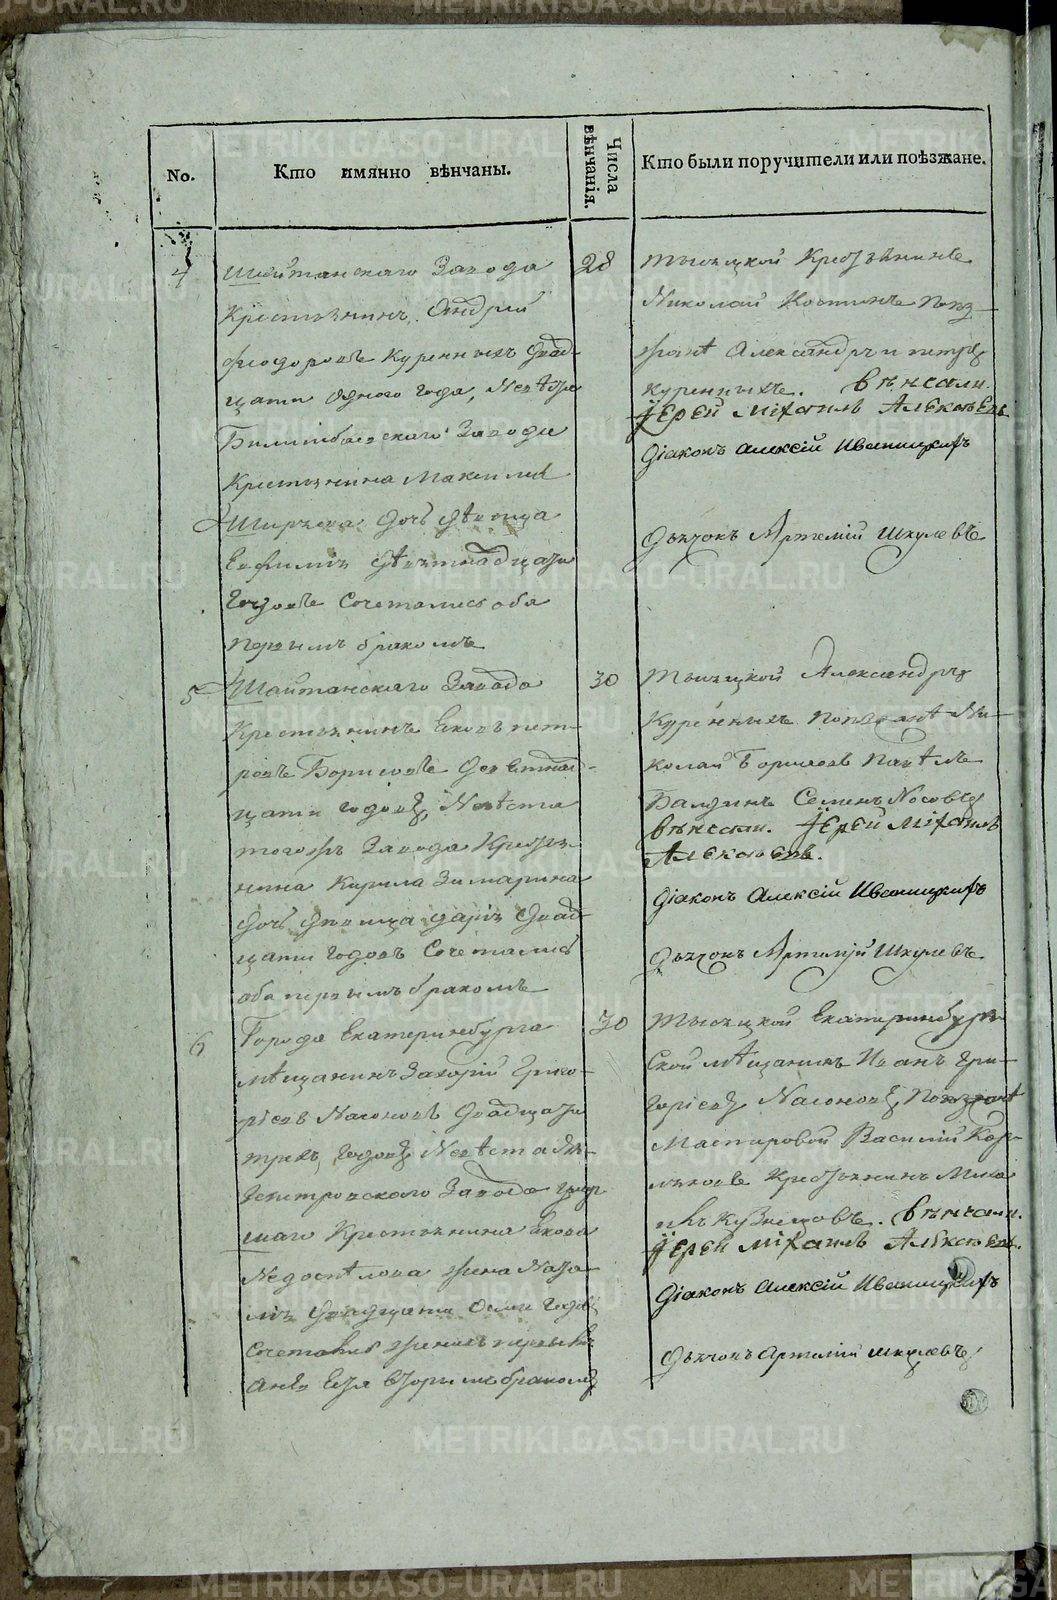 No.
Кто имянно вѣнчаны.
Числа вѣнчанія.
Кто были поручители или поѣзжане.
4
Шайтанскаго Завода
Крестьянинъ Андрей
Феодоровъ Куренныхъ двад-
цати одного года, Невѣста
Билимбаевскаго Завода
Крестьянина Максима
Ширяева дочь девица
Евфимія девятнадцати
Годовъ Сочетались оба
первымъ бракомъ
28
тысяцкой Крестьянинъ
Николай Костинъ Поез-
жанѣ Александръ и петръ
куренныхъ. Вѣнчали
Іерей Міхаилъ Алексѣевъ
Діаконъ Алексій Иваницкихъ
Дьячокъ Артемій Шкулевъ
5
Шайтанскаго Завода
Крестьянинъ Ековъ пет-
ровъ Борисовъ девятнад-
цати годовъ, Невѣста
тогожъ Завода Крестья-
нина Кирила Зимарина
дочь девица дарія двад-
цати годовъ Сочетались
оба первымъ бракомъ
30
Тысяцкой Александръ
Куренныхъ Поезжанѣ Ни-
колай Борисовъ Павелъ
Балдинъ Семенъ Носовъ
Вѣнчали. Іерей Міхаилъ
Алексѣевъ.
Діаконъ Алексій Иваницкихъ
Дьячокъ Артемій Шкулевъ
6
Города Екатеринбурга
мѣщанинъ Захарій Григо-
рьевъ Насоновъ двадцати
трехъ годовъ Невѣста
Завода умер-
шаго Крестьянина Екова
Недоспѣлова жена Мара-
мія двадцати осми годовъ
Сочетались женихъ первымъ
анѣвеста вторымъ бракомъ
30
Тысяцкой Екатеринбург-
ской мѣщанинъ Иванъ Гри-
горьевъ Насоновъ, Поезжанѣ
Мастеровой Василий Кор-
Крестьянинъ Миха
илъ Кузнецовъ. Вѣнчали.
Іерей Міхаилъ Алексѣевъ.
Діаконъ Алексій Иваницкихъ
Дьячокъ Артемій Шкулевъ
METRIKI.GASO-URAL.RU